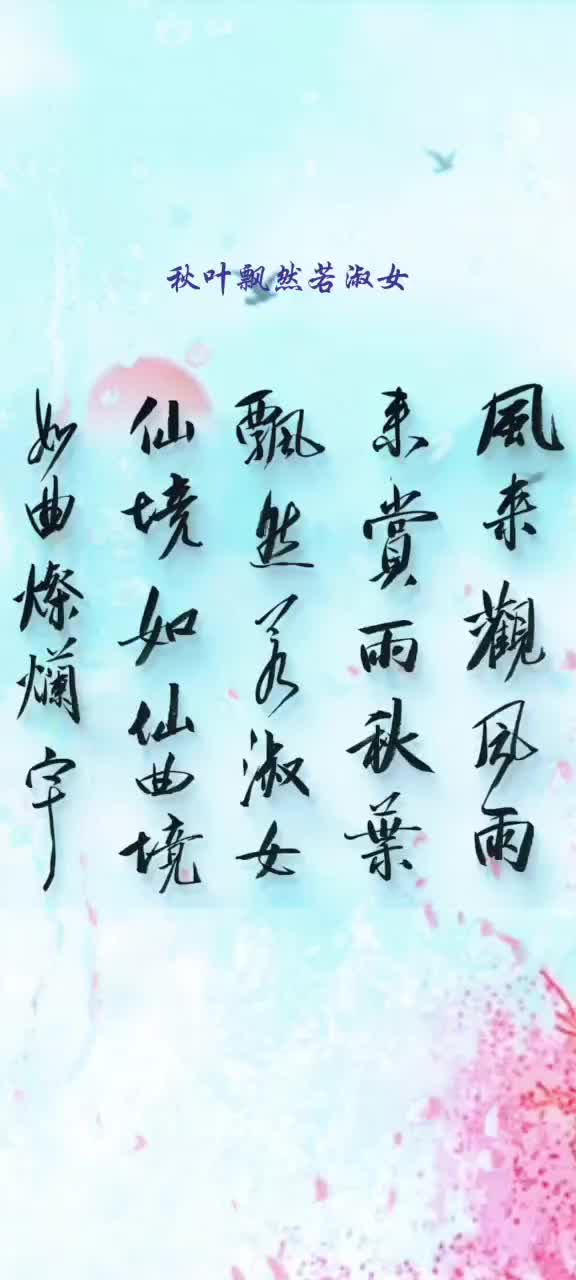 秋叶飘然若淑女
風来觀风雨
来賞雨秋葉
飄然若淑女
仙境如仙曲境
如曲燦爛宇